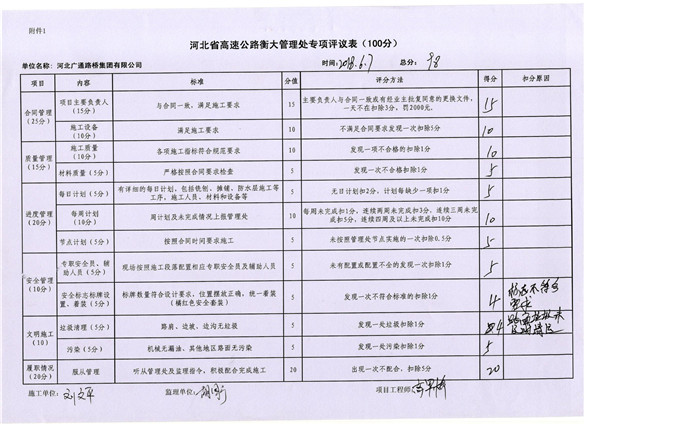 附件1
河北省高速公路衡大管理处专项评议表（100分）
单位名称：河北广通路桥集团有限公司 时间：2018.6.7 总分：98
项目 内容 标准 分值 评分方法 得分 扣分原因
合同管理（25分） 项目主要负责人（15分） 与合同一致，满足施工要求 15 主要负责人与合同一致或有经业主批复同意的更换文件，一天不在扣除3分，罚2000元。 15
施工设备（10分） 满足施工要求 10 不满足合同要求发现一次扣除5分 10
质量管理（15分） 施工质量（10分） 各项施工指标符合规范要求 10 发现一项不合格的扣除1分 10
材料质量（5分） 严格按照合同要求检查 5 发现一次不合格扣除1分 5
进度管理（20分） 每日计划（5分） 有详细的每日计划，包括铣刨、摊铺、防水层施工等工序，施工人员、材料和设备等 5 无日计划扣2分，计划每缺少一项扣1分 5
每周计划（10分） 周计划及未完成情况上报管理处 10 每周未完成扣1分，连续两周未完成扣3分，连续三周未完成扣5分，连续四周及以上未完成扣10分 10
节点计划（5分） 按照合同时间要求施工 5 未按照管理处节点实施的一次扣除0.5分 5
安全管理（10分） 专职安全员、辅助人员（5分） 现场按照施工段落配置相应专职安全员及辅助人员 5 未有配置或配置不全的发现一次扣除1分 5
安全标志标牌设置、着装（5分） 标牌数量符合设计要求，位置摆放正确，统一着装（橘红色安全套装） 5 发现一次不符合标准的扣除1分 4 标志不符合要求
文明施工（10） 垃圾清理（5分） 路面、边坡、边沟无垃圾 5 发现一处垃圾扣除1分 4
污染（5分） 机械无漏油、其他地区路面无污染 5 发现一处污染扣除1分 5
履职情况（20分） 服从管理 听从管理处及监理指令，积极配合完成施工 20 出现一次不配合，扣除5分 20
施工单位： 监理单位： 项目工程师：